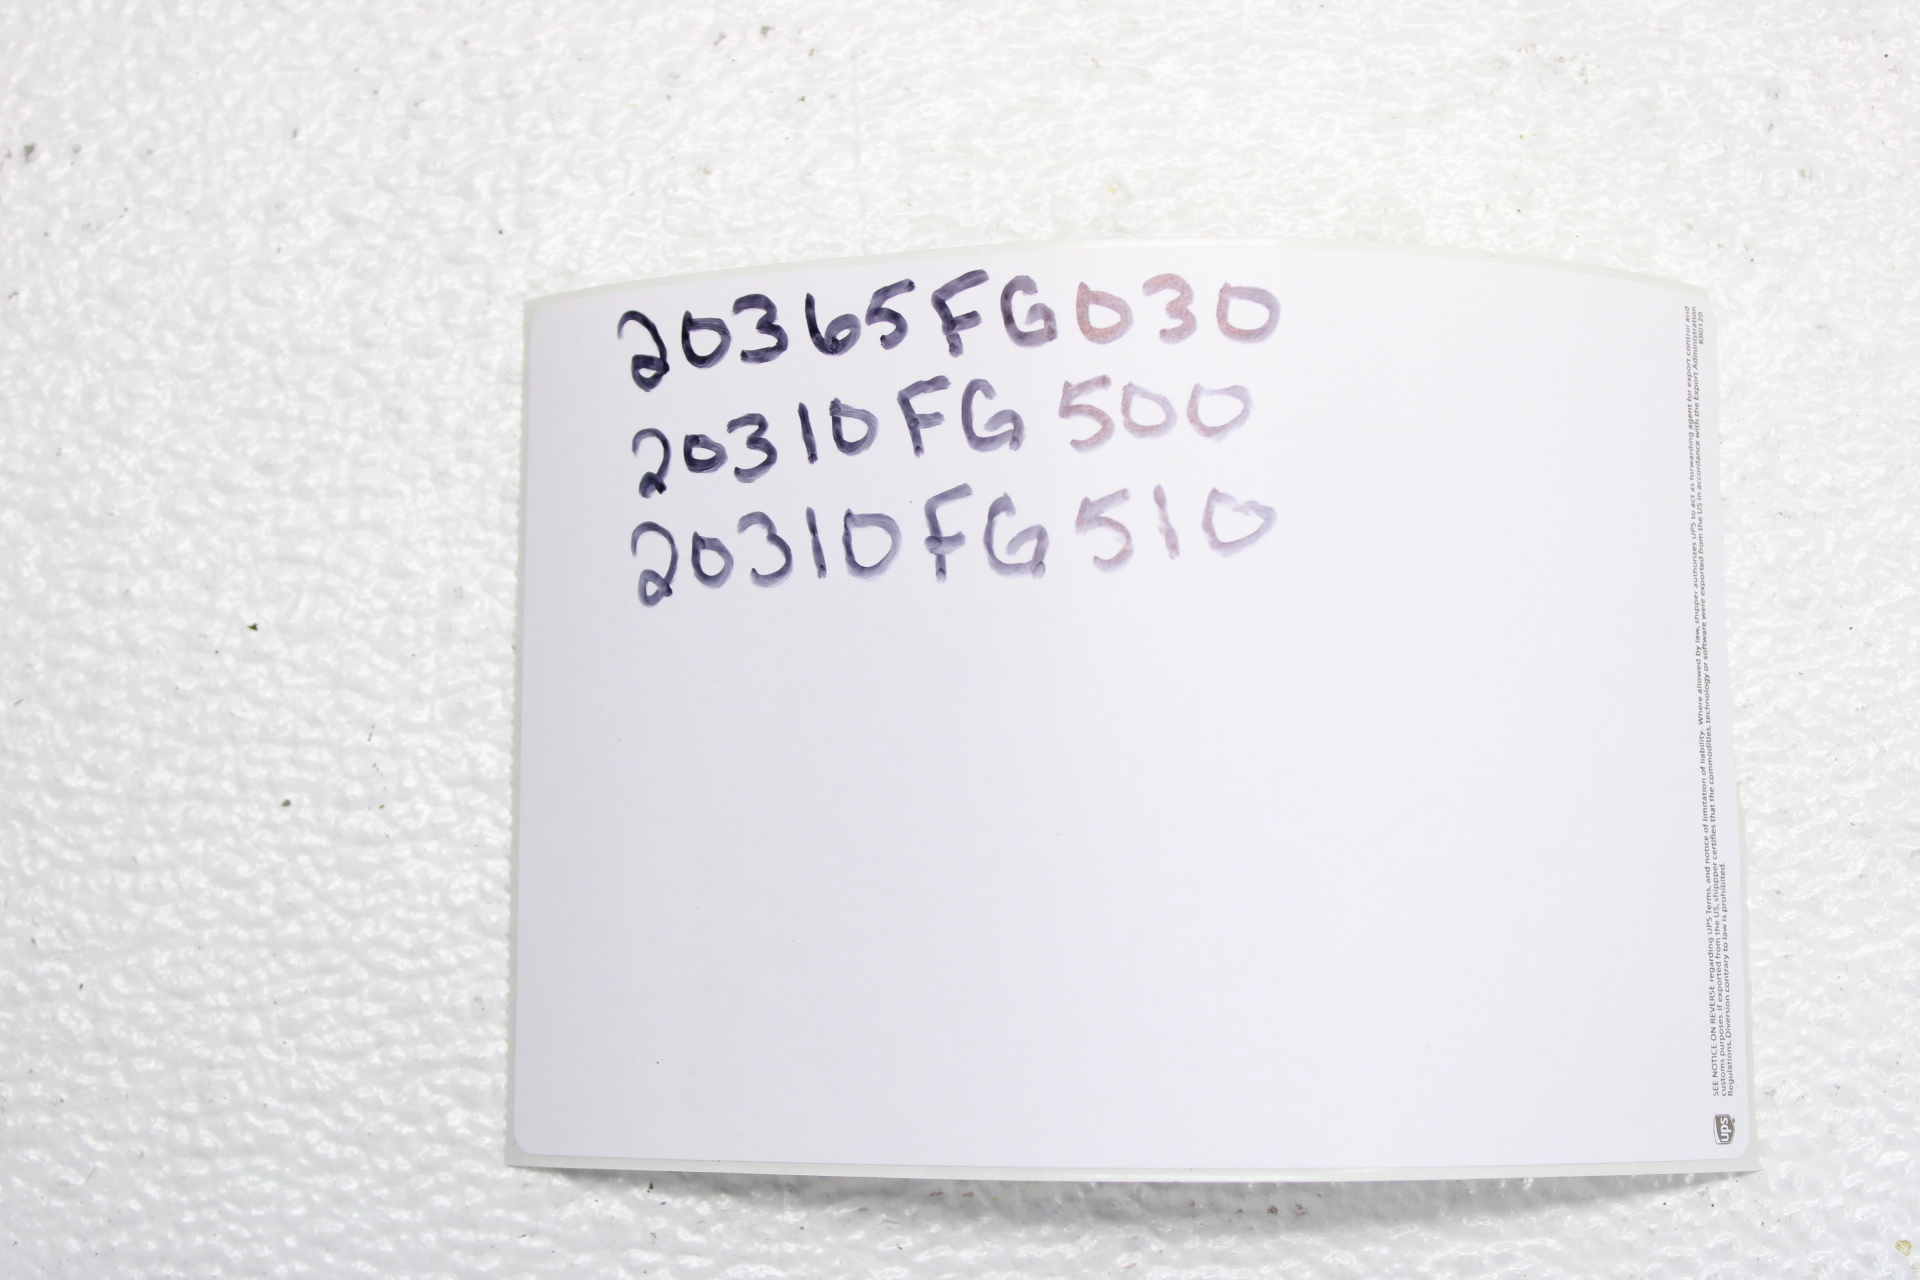 20365FG030
20310FG500
20310FG510
SEE NOTICE ON REVERSE regarding UPS Terms, and notice of limitation of liability. Where allowed by law, shipper authorizes UPS to act as forwarding agent for export control and
customs purposes. If exported from the US, shippper certifies that the commodities, technology or software were exported from the US in accordance with the Export Administration
Regulations. Diversion contrary to law is prohibited.
ups